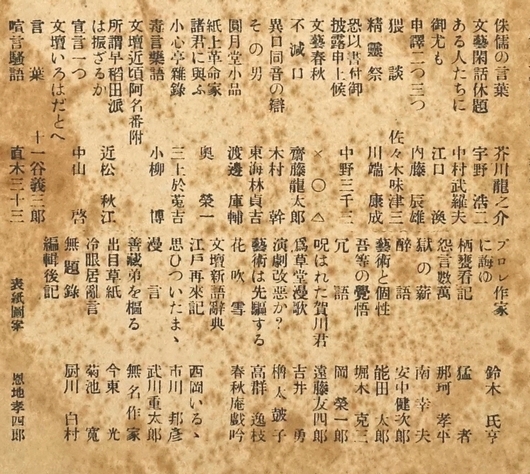 侏儒の言葉　芥川龍之介
文藝閑話休題　宇野浩二
ある人たちに　中村武羅夫
御尤も　江口渙
申譯二つ三つ　内藤辰雄
猥談　佐々木味津三
精靈祭　川端康成
恐以書付御披露申上候　中野三千三
文藝春秋　×○△
不減口　齋藤龍太郎
異口同音の辯　木村幹
その男　東海林貞吉
圓月堂小品　渡邊庫輔
紙上革命家諸君に與ふ　奥榮一
小心亭雜錄　三上於兎吉
毒言藥語　小柳博
文壇近頃阿名番附
所謂早稲田派は振ざるか　近松秋江
宣言一つ　中山啓
文壇いろはだとへ
言葉　十一谷義三郎
喧言騷語　直木三十三
プロレ作家に誨ゆ　鈴木氏亨
柄甕看記　猛者
怨言數萬　那珂孝平
獄の薪　南幸夫
醉語　安中健次郎
藝術と個性　能田太郎
吾等の覺悟　堀木克三
冗語　岡榮一郎
呪はれた賀川君　遠藤友四郎
爲草堂漫歌　吉井勇
演劇改惡か？　櫓太鼓子
藝術は先驅する　高群逸枝
花吹雪　春秋庵戯吟
文壇新語辭典
江戸再來記　西岡いるゝ
思ひついたまゝ　市川邦彦
漫言　武川重太郎
善藏弟を樞る　無名作家
出目草紙　今東光
冷眼居亂言　菊池寛
無題錄　厨川白村
編輯後記
表紙圖案　恩地孝四郎